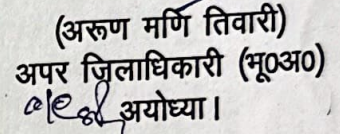 (अरूण मणि तिवारी)
अपर जिलाधिकारी (भू०अ०)
अयोध्या।